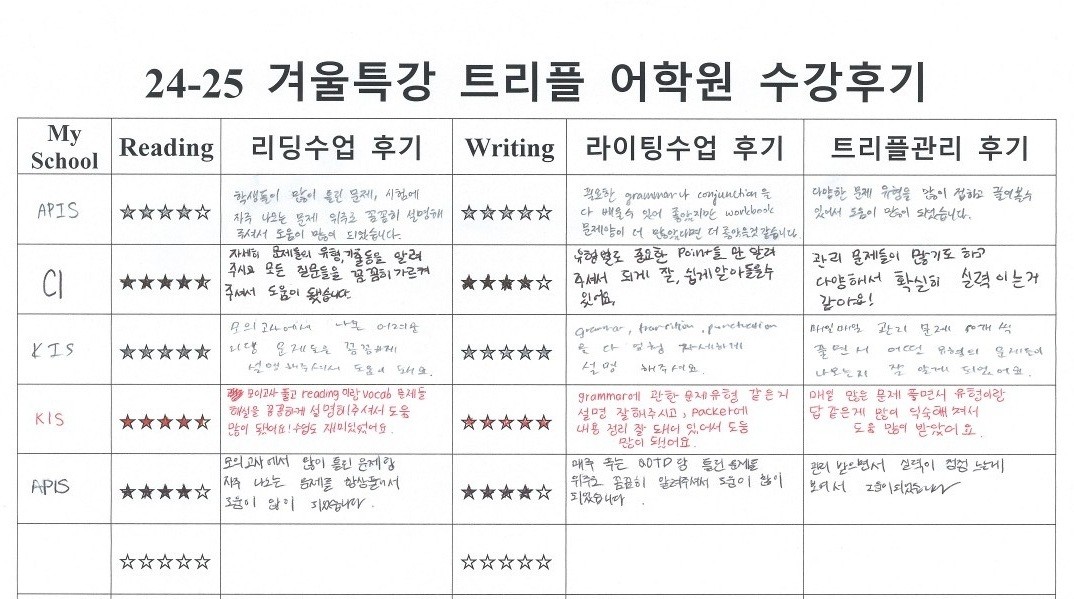 24-25 겨울특강 트리플 어학원 수강후기
My School
Reading
리딩수업 후기
Writing
라이팅수업 후기
트리플관리 후기
APIS
★★★★☆
학생들이 많이 틀린 문제, 시험에
자주 나오는 문제 위주로 꼼꼼히 설명해
주셔서 도움이 많이 되었습니다.
★★★★☆
필요한 grammar나 conjunction을
다 배울수 있어 좋았지만 workbook
문제양이 더 많았다면 더 좋았을것 같습니다.
다양한 문제 유형을 많이 접하고 풀어볼수
있어서 도움이 많이 되었습니다.
CI
자세히 문제들의 유형, 기출등을 알려
주시고 모든 질문들을 꼼꼼히 가르켜
주셔서 도움이 됐습니다.
★★★★☆
유형별로 중요한 Point들만 알려
주셔서 되게 잘, 쉽게 알아들을수
있어요.
관리 문제들이 많기도 하고
다양해서 확실히 실력이 는거
같아요!
KIS
모의고사에서 나온 어려운
리딩 문제들을 꼼꼼하게
설명해주셔서 도움이 돼요.
★★★★★
grammar, transition, punctuation
을 다 엄청 자세하게
설명 해주셔요.
매일매일 관리 문제 10개 씩
풀면서 어떤 유형의 문제들이
나오는지 잘 알게 되었어요.
KIS
모의고사 풀고 reading이랑 vocab 문제들
해설을 꼼꼼하게 설명해주셔서 도움
많이 됐어요! 수업도 재미있었어요.
★★★★★
grammar에 관한 문제유형 같은거
설명 잘해주시고, packet에
내용 정리 잘 돼어 있어서 도움
많이 됐어요.
매일 많은 문제 풀면서 유형이랑
답 같은게 많이 익숙해져서
도움 많이 받았어요.
APIS
★★★★☆
모의고사에서 많이 틀린 문제랑
자주 나오는 문제를
도움이 많이 되었습니다.
★★★★☆
매주 주는 QOTD 담 틀린 문제를
위주로 꼼꼼히 알려주셔서 도움이 많이
되었습니다.
관리 받으면서 실력이 점점 느는게
보여서 도움이 되었습니다
☆☆☆☆☆
☆☆☆☆☆